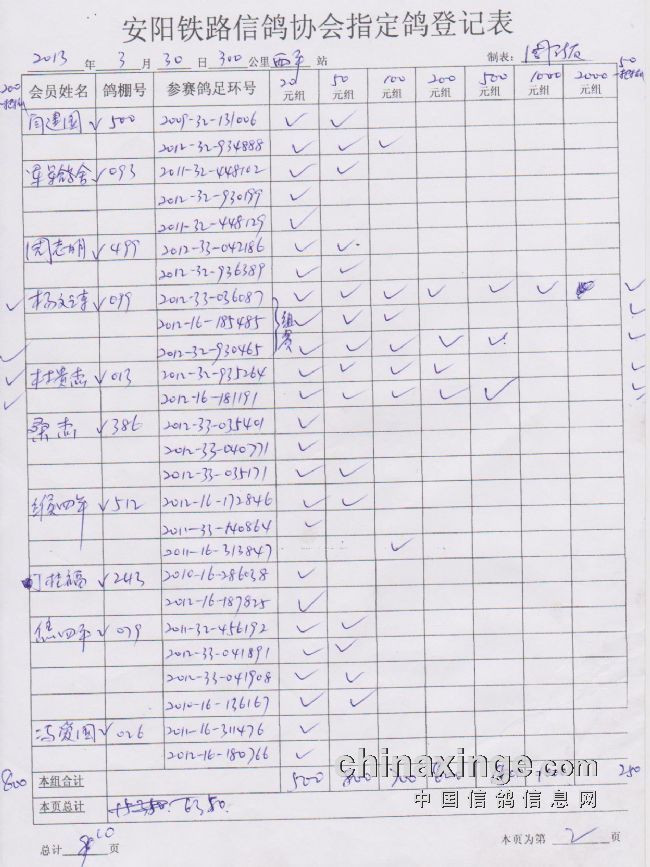 安阳铁路信鸽协会指定鸽登记表
2013 年 3 月 30 日 300 公里 西平 站 制表:
会员姓名 鸽棚号 参赛鸽足环号 20元组 50元组 100元组 200元组 500元组 1000元组 2000元组
闫建国 ✓500 2009-32-131006 ✓ ✓
2012-32-934888 ✓ ✓ ✓
✓093 2011-32-448102 ✓ ✓
2012-32-930199 ✓
2011-32-448129 ✓
周志明 ✓499 2012-33-042186 ✓ ✓
2012-32-936389 ✓ ✓
✓099 2012-33-036087 ✓ ✓ ✓ ✓ ✓ ✓
2012-16-185485 ✓ ✓ ✓
2012-32-930465 ✓ ✓ ✓ ✓ ✓
杜贵杰 ✓013 2012-32-935264 ✓ ✓ ✓ ✓
2012-16-181191 ✓ ✓ ✓ ✓ ✓
桑杰 ✓386 2012-33-035401 ✓
2012-33-040771 ✓
2012-33-035171 ✓ ✓
✓512 2012-16-172846 ✓ ✓
2011-33-140864 ✓
2011-16-313847 ✓
✓243 2010-16-286038 ✓
2012-16-187825 ✓
焦四平 ✓079 2011-32-456192 ✓ ✓
2012-33-041891 ✓ ✓
2012-33-041908 ✓ ✓
2010-16-136167 ✓ ✓
冯爱国 ✓026 2011-16-311476 ✓
2012-16-180766 ✓
800 本组合计 500 250
本页总计 6350
总计 10 页 本页为第 2 页
chinaxinge.com
中国信鸽信息网